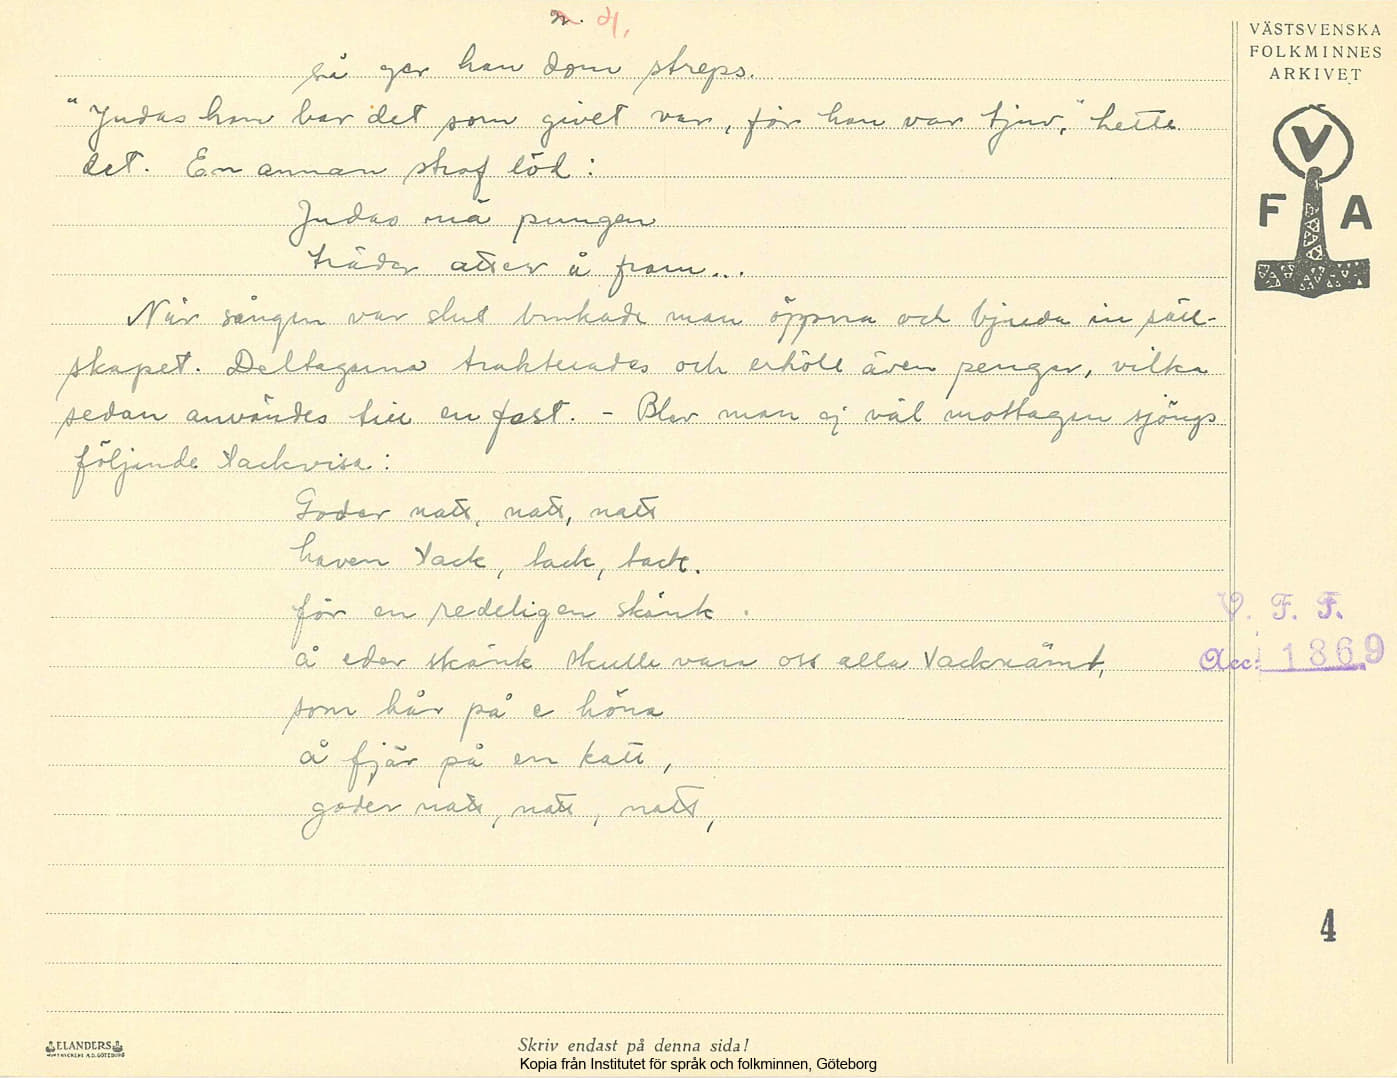 4.
VÄSTSVENSKA
FOLKMINNES
ARKIVET
V
F A
så ger han dom streps.
"Judas han bar det som givet var, för han var tjuv," hette
det. En annan strof löd:
Judas mä pungen
träder atter å fram...
När sången var slut brukade man öppna och bjuda in säll-
skapet. Deltagarna trakterades och erhöll även pengar, vilka
sedan användes till en fest. - Blev man ej väl mottagen sjöngs
följande tackvisa:
Goder natt, natt, natt
haven tack, tack, tack.
för en redeligen skänk.
å eder skänk skulle vara oss alla tacknämt,
som hår på e höna
å fjär på en katt,
goder natt, natt, natt,
V. F. F.
Acc: 1869
4
ELANDERS
Skriv endast på denna sida!
Kopia från Institutet för språk och folkminnen, Göteborg